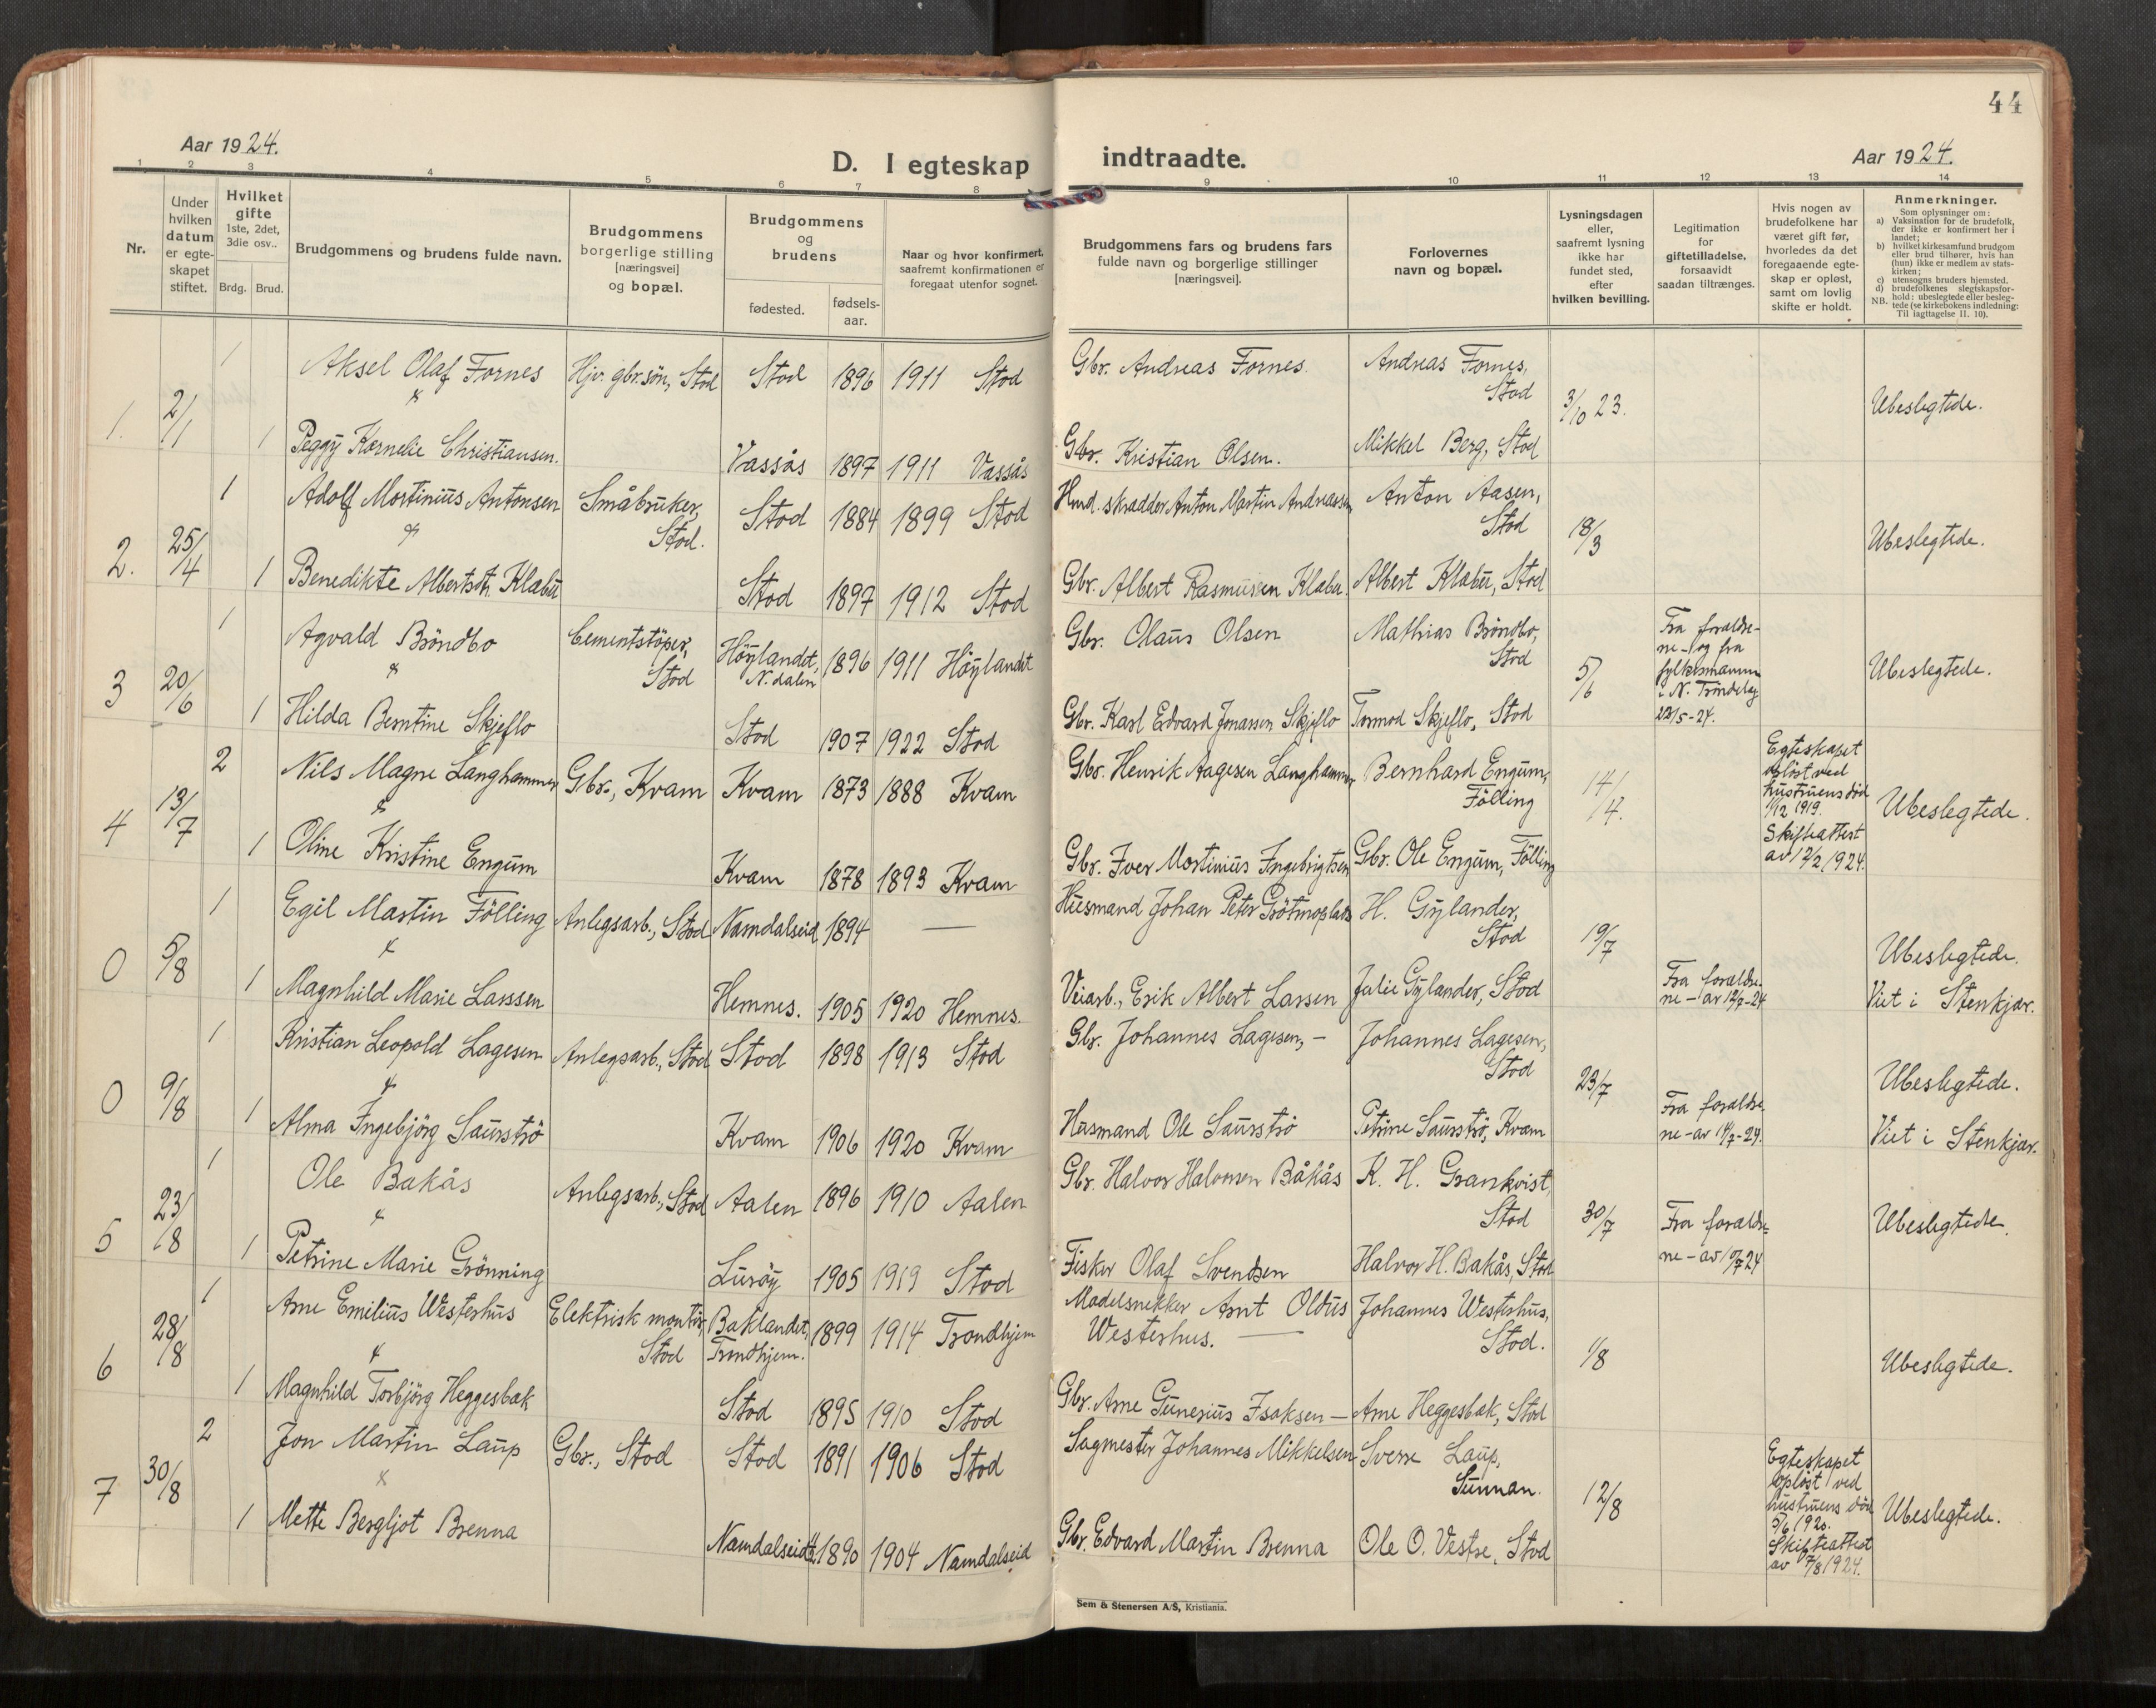 44
Aar 1924.
D. I egteskap indtraadte.
Aar 1924.
1 2 3 4 5 6 7 8 9 10 11 12 13 14
Nr.
Under hvilken datum er egte-skapet stiftet.
Hvilket gifte 1ste, 2det, 3die osv..
Brdg. Brud.
Brudgommens og brudens fulde navn.
Brudgommens borgerlige stilling [næringsvei] og bopæl.
Brudgommens og brudens
fødested. fødsels-aar.
Naar og hvor konfirmert, saafremt konfirmationen er foregaat utenfor sognet.
Brudgommens fars og brudens fars fulde navn og borgerlige stillinger [næringsvei].
Forlovernes navn og bopæl.
Lysningsdagen eller, saafremt lysning ikke har fundet sted, efter hvilken bevilling.
Legitimation for giftetilladelse, forsaavidt saadan tiltrænges.
Hvis nogen av brudefolkene har været gift før, hvorledes da det foregaaende egte-skap er opløst, samt om lovlig skifte er holdt.
Anmerkninger.
Som oplysninger om:
a) Vaksination for de brudefolk, der ikke er konfirmert her i landet;
b) hvilket kirkesamfund brudgom eller brud tilhører, hvis han (hun) ikke er medlem av stats-kirken;
c) utensogns bruders hjemsted.
d) brudefolkenes slegtskapsfor-hold: ubeslegtede eller besleg-tede (se kirkebokens indledning: Til iagttagelse II. 10).
NB.
1 Aksel Olaf Fornes Hjv. gbr.søn, Stod Stod 1896 1911 Stod Gbr. Andreas Fornes. Andreas Fornes, Stod
1. 2/1 & 3/10 23. Ubeslegtede.
1 Peggy Kornelie Christiansen. Vassås 1897 1911 Vassås Gbr. Kristian Olsen. Mikkel Berg, Stod
1 Adolf Mortinius Antonsen Småbruker, Stod. Stod 1884 1899 Stod Hmd. skrædder Anton Martin Andreassen Anton Aasen, Stod
2. 25/4 & 18/3 Ubeslegtede.
1 Benedikte Albertsdt. Klæbu Stod 1897 1912 Stod Gbr. Albert Rasmussen Klæbu. Albert Klæbu, Stod
1 Agvald Bröndbo Cementstöper, Stod Höylandet, N.dalen 1896 1911 Höylandet Gbr. Olaus Olsen Mathias Bröndbo, Stod
3 20/6 & 5/6 Fra foræld­re-ne - og fra fylkesmannen i N. Tröndelag 22/5-24. Ubeslegtede.
1 Hilda Berntine Skjeflo Stod 1907 1922 Stod Gbr. Karl Edvard Jonassen Skjeflo Tormod Skjeflo, Stod
2 Nils Magne Langhammer Gbr., Kvam Kvam 1873 1888 Kvam Gbr. Henrik Aagesen Langhammer Bernhard Engum, Fölling
4 13/7 & 14/4. Egteskapet oplöst ved hustruens död 1/12 1919. Skifteattest av 12/2 1924. Ubeslegtede.
1 Oline Kristine Engum Kvam 1878 1893 Kvam Gbr. Iver Mortinius Ingebrigtsen Gbr. Ole Engum, Fölling
1 Egil Martin Fölling Anlegsarb., Stod Namdalseid 1894 — Husmand Johan Peter Grötmoplads H. Gylander, Stod
0 5/8 & 19/7 Ubeslegtede.
1 Magnhild Marie Larssen Hemnes. 1905 1920 Hemnes. Veiarb., Erik Albert Larsen Julie Gylander, Stod Fra forældre-ne - av 12/7-24 Viet i Stenkjær.
1 Kristian Leopold Lagesen Anlegsarb., Stod Stod 1898 1913 Stod Gbr. Johannes Lagesen, - Johannes Lagesen, Stod
0 9/8 & 23/7 Ubeslegtede.
1 Alma Ingebjörg Saurströ Kvam 1906 1920 Kvam Husmand Ole Saurströ Petrine Saurströ, Kvam Fra forældre-ne - av 14/7-24. Viet i Stenkjær.
1 Ole Bakås Anlegsarb., Stod Aalen 1896 1910 Aalen Gbr. Halvor Halvorsen Båkås K. H. Grankvist, Stod
5 23/8 & 30/7 Fra forældre-ne - av 10/7 24 Ubeslegtede.
1 Petrine Marie Grönning Luröy 1905 1919 Stod Fisker Olaf Svendsen Halvor H. Bakås, Stod
1 Arne Emilius Westerhus Elektrisk montör, Stod Baklandet, Trondhjem. 1899 1914 Trondhjem Modelsnekker Arnt Oldus Westerhus. — Johannes Westerhus, Stod.
6 28/8 & 1/8 Ubeslegtede.
1 Magnhild Torbjörg Heggesbæk Stod 1895 1910 Stod Gbr. Arne Gunerius Isaksen — Arne Heggesbæk, Stod
2 Jon Martin Laup Gbr., Stod Stod 1891 1906 Stod Sagmester Johannes Mikkelsen Sverre Laup, Sunnan.
7 30/8 & 12/8 Egteskapet oplöst ved hustruens död 5/6 1920. Skifteattest av 7/8 1924. Ubeslegtede.
1 Mette Bergljot Brenna Namdalseidet 1890 1904 Namdalseid Gbr. Edvard Martin Brenna Ole O. Vestre, Stod
Sem & Stenersen A/S, Kristiania.